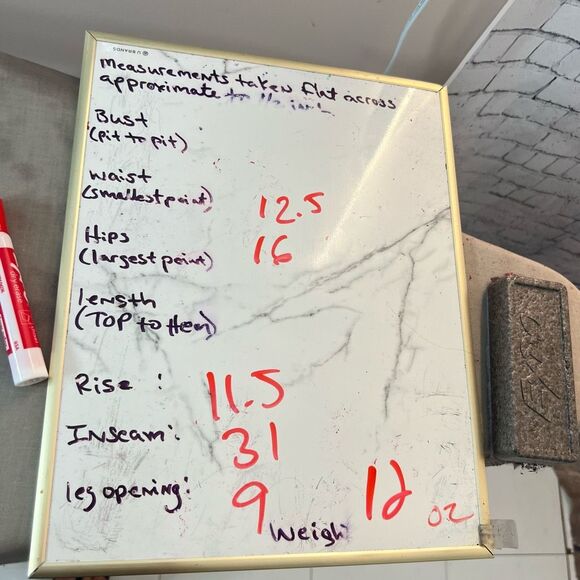 U BRANDS
measurements taken flat across
approximate to the inch
Bust
(pit to pit)
waist
(smallest point) 12.5
Hips
(largest point) 16
length
(TOP to Hem)
Rise : 11.5
Inseam: 31
leg opening: 9
Weigh 12 oz